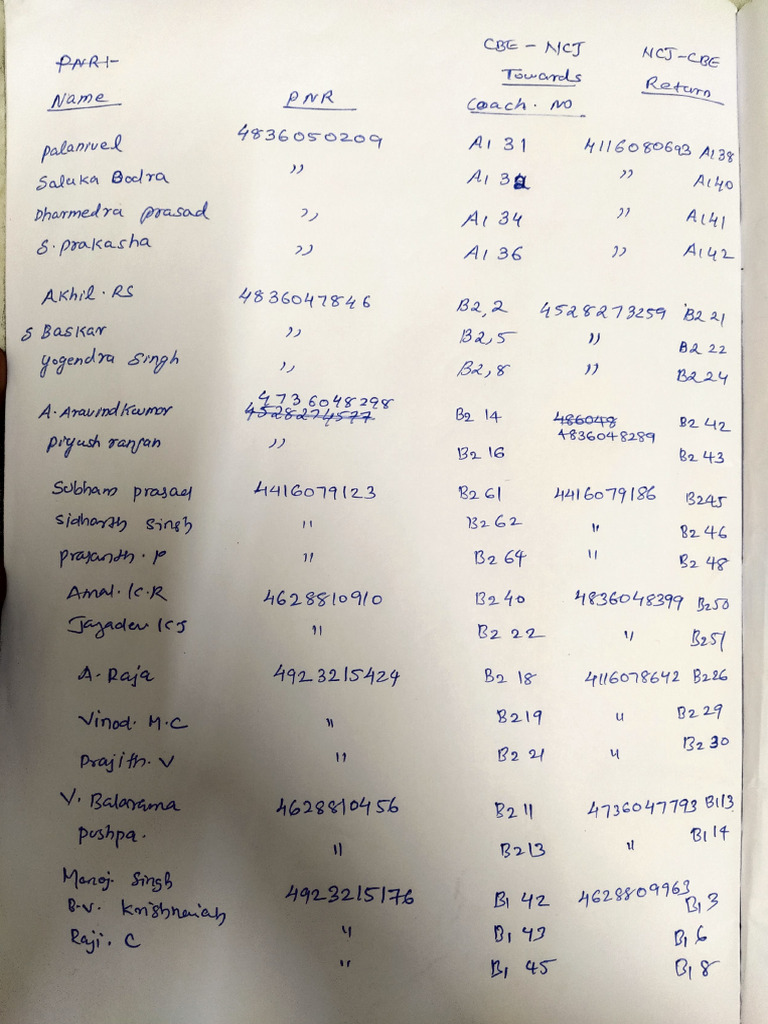 PNR:-
CBE - NCJ NCJ-CBE
Towards Return
Name PNR Coach. NO
Palanivel 4836050209 A1 31 4116080693 A138
Saluka Bodra " A1 32 " A140
Dharmedra prasad " A1 34 " A141
S. prakasha " A1 36 " A142
Akhil. RS 4836047846 B2,2 4528273259 B2 21
S Baskar " B2,5 " B2 22
Yogendra Singh " B2,8 " B2 24
A. Aravind Kumar 4736048298 B2 14 486048 B2 42
4528274577 4836048289
Piyush ranjan " B2 16 B2 43
Subham prasad 4416079123 B2 61 4416079186 B245
Sidharth Singh " B2 62 " B2 46
prasanth. P " B2 64 " B2 48
Amal. K.R 4628810910 B2 40 4836048399 B250
Jayadev KJ " B2 22 " B251
A. Raja 4923215424 B2 18 4116078642 B226
Vinod. M.C " B219 " B2 29
Prajith. V " B2 21 " B2 30
V. Balarama 4628810456 B2 11 4736047793 B113
pushpa. " B213 " B1 14
Manoj Singh 4923215176 B1 42 4628809963 B1 3
B.V. Krishnaiah " B1 43 B1 6
Raji. C " B1 45 B1 8